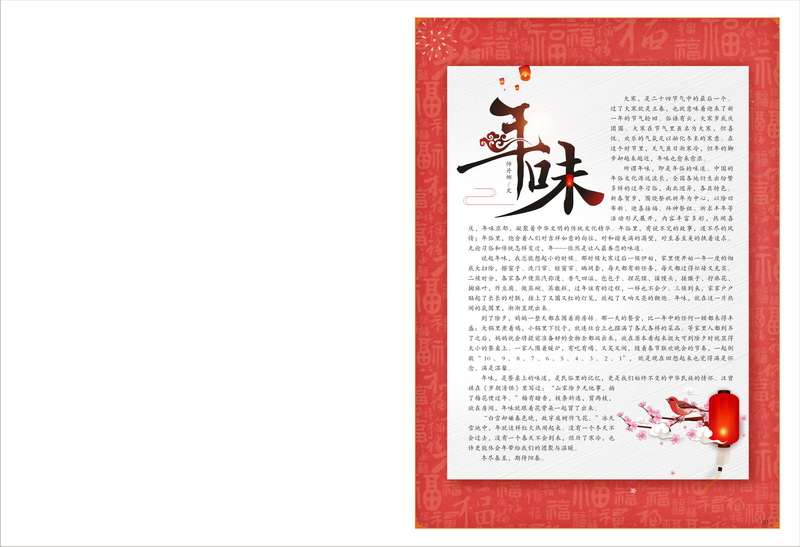 年味
师丹娜/文
大寒，是二十四节气中的最后一个。
过了大寒就是立春，也就意味着迎来了新
一年的节气轮回。俗语有云，大寒岁底庆
团圆。大寒在节气里虽名为大寒，但喜
悦、欢乐的气氛足以融化冬末的寒意。在
这个时节里，天气虽日渐寒冷，但年的脚
步却越来越近，年味也愈来愈浓。
所谓年味，即是年俗的味道。中国的
年俗文化源远流长，全国各地衍生出纷繁
多样的过年习俗，南北迥异，各具特色。
新春贺岁，围绕祭祝祈年为中心，以除旧
布新、迎喜接福、拜神祭祖、祈求丰年等
活动形式展开，内容丰富多彩，热闹喜
庆，年味浓郁，凝聚着中华文明的传统文化精华。年俗里，有说不完的故事，道不尽的风
情；年俗里，饱含着人们对吉祥如意的向往，对和谐美满的渴望，对真善美的执着追求。
无论习俗和传统怎样变迁，年——依然是让人最眷恋的味道。
说起年味，我总能想起小的时候。那时候大寒过后一候伊始，家里便开始一年一度的彻
底大扫除，擦窗子、洗门帘、晾窗帘、晒网套，每天都有新任务，每天都过得忙碌又充实。
二候时分，各家各户便蒸汽弥漫、香气四溢，包包子、捏花馍、揉馒头、搓馓子、拧麻花、
掬麻叶、炸豆腐、做蒸碗、蒸甑糕，过年该有的过程，一样也不会少。三候到来，家家户户
贴起了长长的对联，挂上了又圆又红的灯笼，放起了又响又亮的鞭炮。年味，就在这一片热
闹的氛围里，渐渐呈现出来。
到了除夕，妈妈一整天都在围着厨房转。那一天的餐食，比一年中的任何一顿都来得丰
盛：大锅里煮着鸡，小锅里下饺子，就连灶台上也摆满了各式各样的菜品。等家里人都到齐
了之后，妈妈就会将提前准备好的食物全都端出来，放在原本看起来挺大可到除夕时就显得
太小的餐桌上。一家人围着暖炉，有吃有喝、又笑又闹，随着春节联欢晚会的节奏，一起倒
数“10、9、8、7、6、5、4、3、2、1”，就是现在回想起来也觉得满是怀
念、满是温馨。
年味，是餐桌上的味道，是民俗里的记忆，更是我们始终不变的中华民族的情怀。汪曾
祺在《岁朝清供》里写过：“山家除夕无他事，插
了梅花便过年。”梅有暗香，枝条斜逸，剪两枝，
放在房间，年味就跟着花骨朵一起冒了出来。
“白雪却嫌春色晚，故穿庭树作飞花。”冰天
雪地中，年就这样红火热闹起来。没有一个冬天不
会过去，没有一个春天不会到来，经历了寒冷，也
许更能体会年带给我们的团聚与温暖。
冬尽春至，期待阳春。